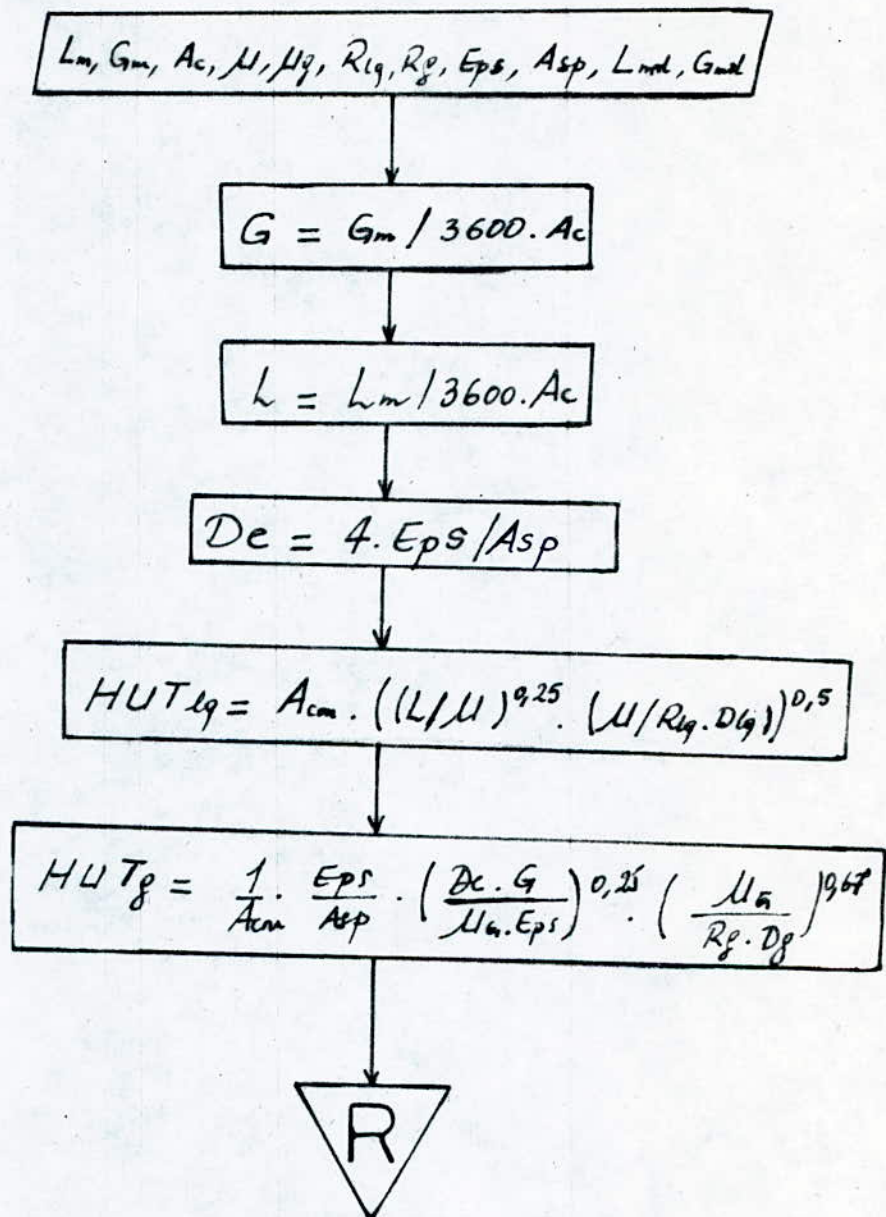 Lm, Gm, Ac, μ, μg, Rlq, Rg, Eps, Asp, Lmd, Gmd
G = Gm / 3600. Ac
L = Lm / 3600. Ac
De = 4. Eps/Asp
HUTlq = Acm. ((L/μ)^0,25. (μ/Rlq. Dlq))^0,5
HUTg = 1/Acm. Eps/Asp. (De. G/μG. Eps)^0,25. (μG/Rg. Dg)^0,67
R